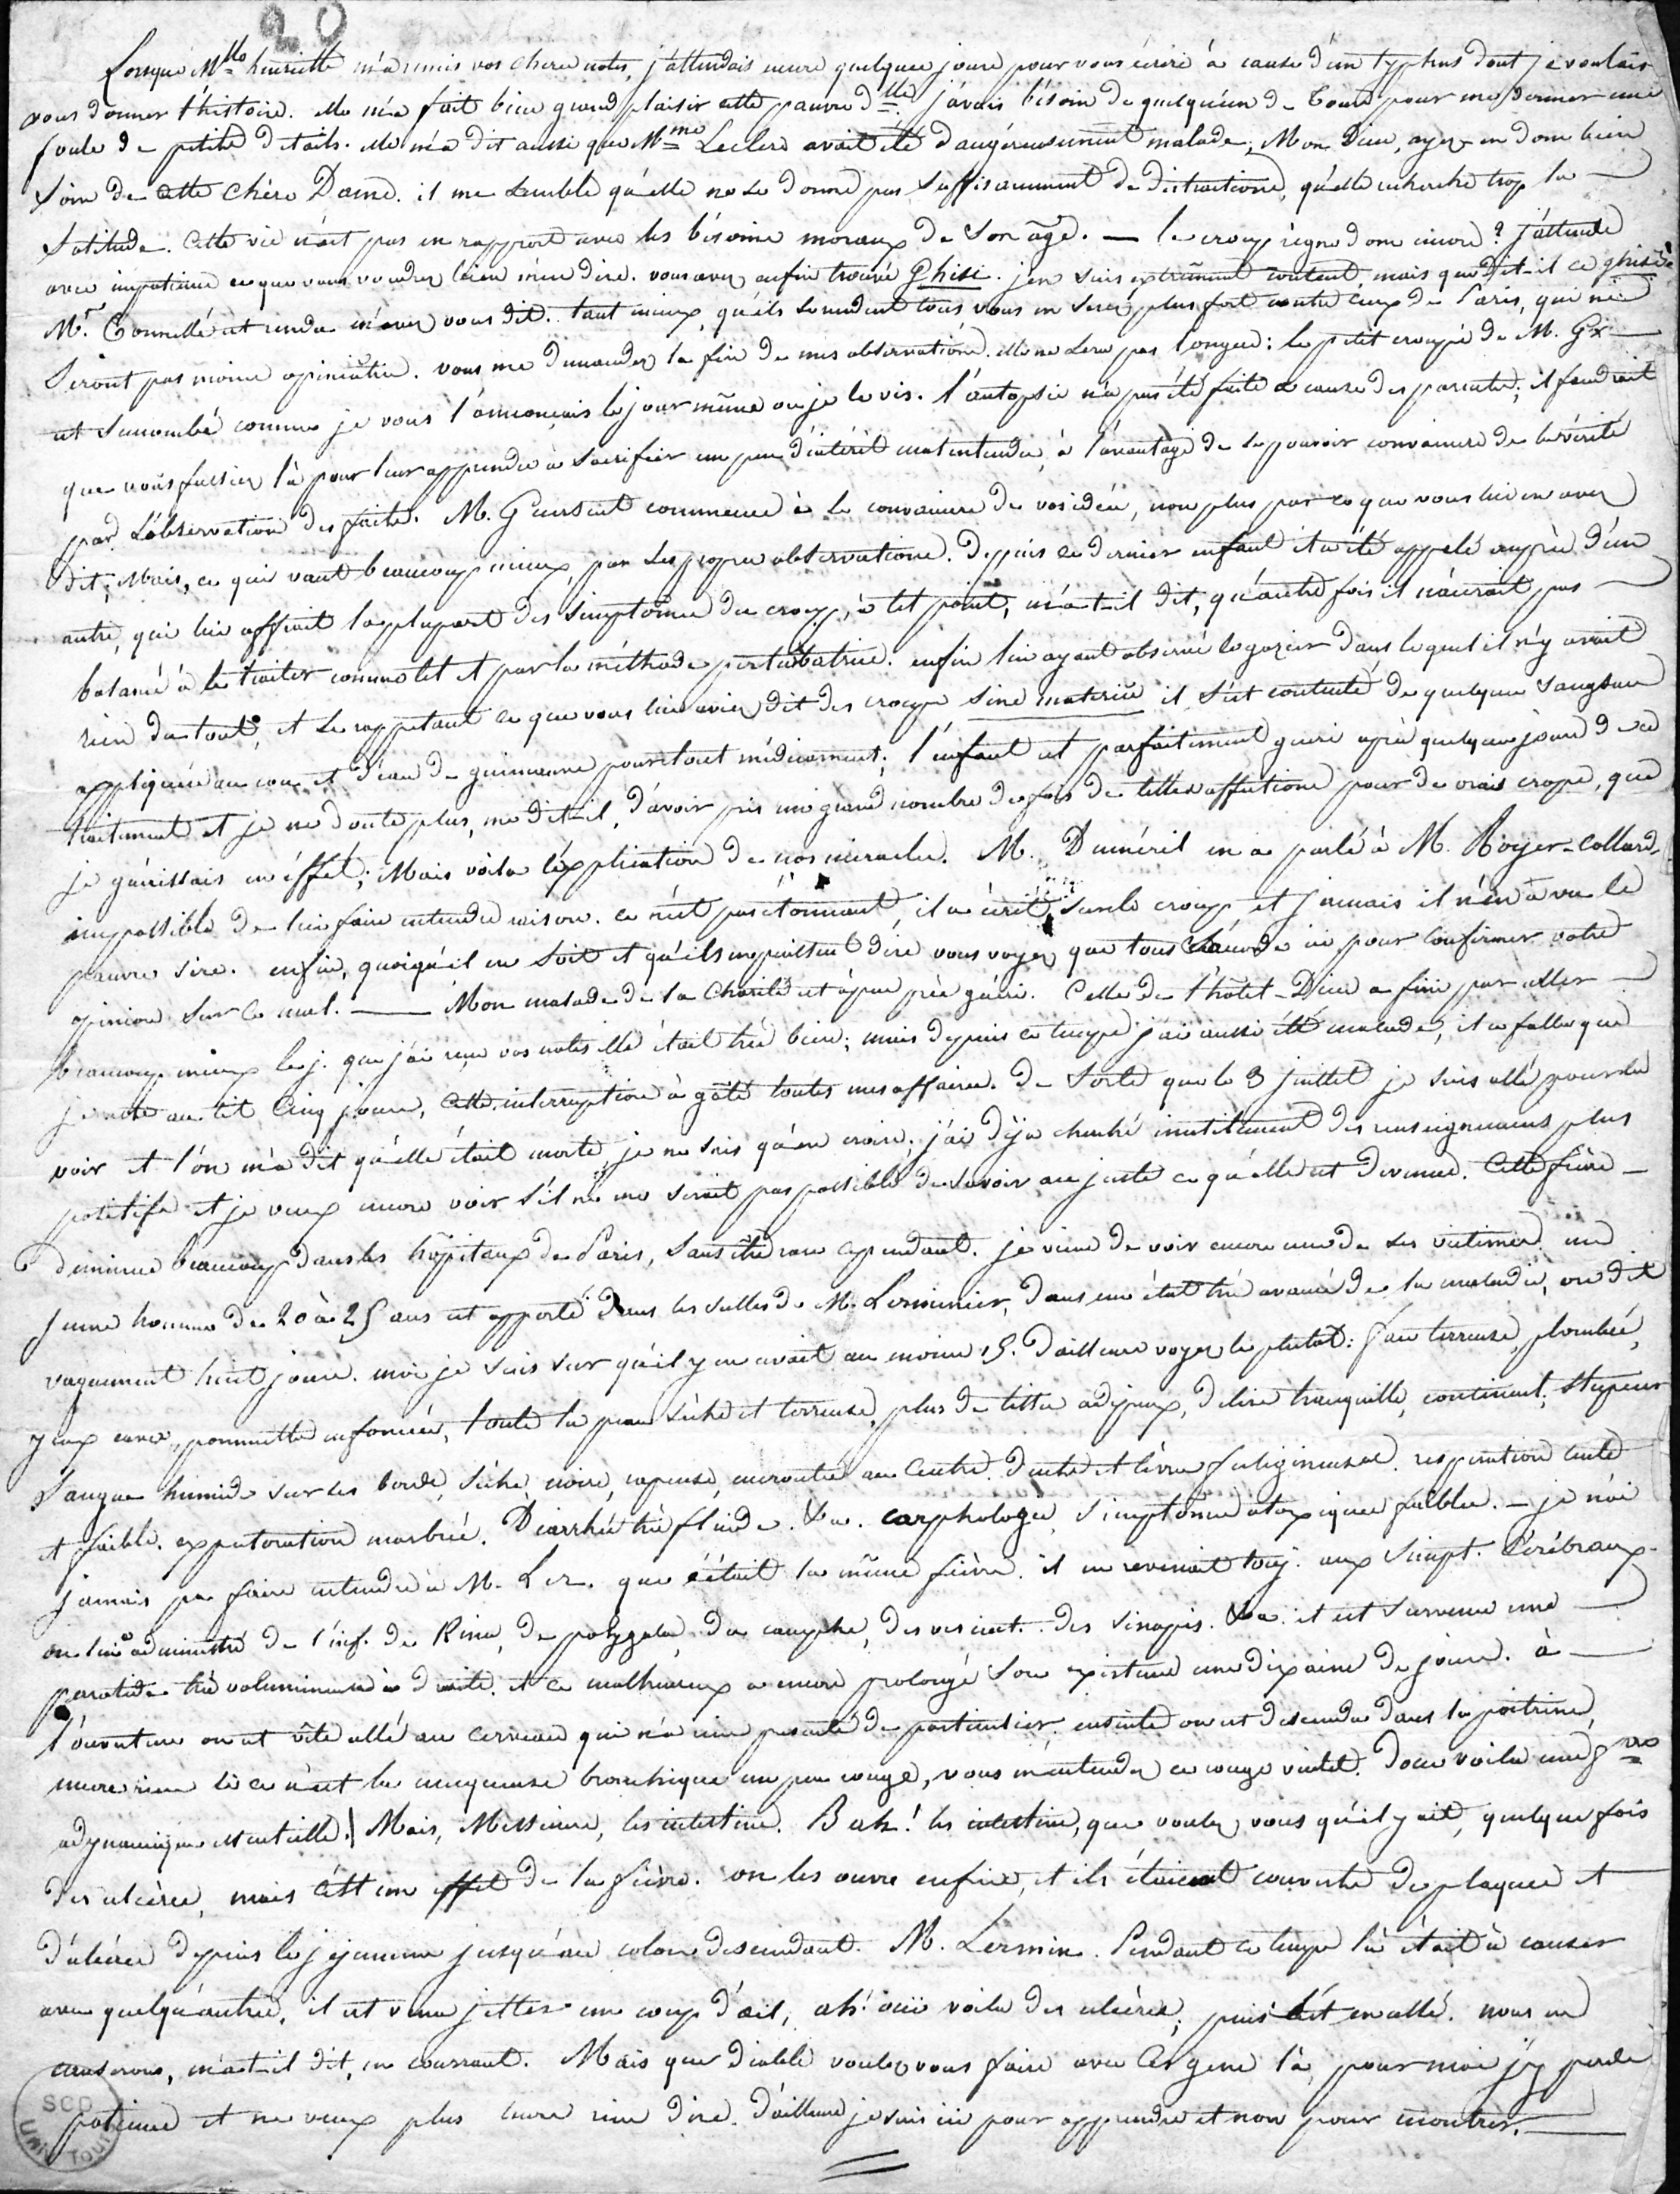 20
Lorsque Mlle henriette m'a remis vos chères notes, j'attendais encore quelques jours pour vous écrire à cause d'un typhus dont je voulais
vous donner l'histoire. elle m'a fait bien grand plaisir cette pauvre dlle. j'avais bésoin de quelqu'un de Tours pour me donner une
foule de petits détails. elle m'a dit aussi que Mme Leclerc avait été dangéreusement malade; Mon Dieu, ayez en donc bien
soin de cette chère Dame. il me semble qu'elle ne se donne pas suffisamment de distractions, qu'elle recherche trop la
solitude. Cette vie n'est pas en rapport avec les bésoins moraux de son âge. — le croup règne donc encore? j'attends
avec impatience ce que vous voudrez bien m'en dire. vous avez enfin trouvé Ghisi. j'en suis extrêmement content mais que dit-il ce ghisi?
Mr. Connellé est rendu m'avez vous dit. tant mieux, qu'ils se rendent tous vous en serez plus fort contre ceux de Paris, qui ne
seront pas moins opiniâtres. vous me demandez la fin de mes observations. elle ne sera pas longue: le petit croupé de M. Gx
est succombé comme je vous l'annonçais le jour même où je le vis. l'autopsie n'a pas été faite à cause des parents; il faudrait
que vous fussiez là pour leur apprendre à sacrifier un peu d'intérêt malentendu, à l'avantage de se pouvoir convaincre de la vérité
par l'observation des faits. M. Guersent commence à se convaincre de vos idées, non plus par ce que vous lui en avez
dit; Mais, ce qui vaut beaucoup mieux, par ses propres observations. Depuis ce dernier enfant il a été appelé auprès d'un
autre, qui lui offrait la plupart des simptômes du croup, à tel point, m'a-t-il dit, qu'autre fois il n'aurait pas
balancé à le traiter comme tel et par la méthode perturbatrice. enfin lui ayant observé le gozier dans lequel il n'y avait
rien du tout, et se rappelant ce que vous lui aviez dit des croups sine materiâ il s'est contenté de quelques sangsues
appliquées au cou et d'eau de guimauve pour tout médicament; l'enfant est parfaitement guéri après quelques jours de ce
traitement et je ne doute plus, me dit-il, d'avoir pris un grand nombre de fois de telles affections pour de vrais croups, que
je guérissais en éffet; Mais voilà l'explication de nos miracles. M. Duméril en a parlé à M. Royer-Collard
impossible de lui faire entendre raison. ce n'est pas étonnant, il a écrit sur le croup, et jamais il n'en a vu le
pauvre sire. enfin, quoiqu'il en soit et qu'ils en puissent dire vous voyez que tous s'accorde ici pour confirmer votre
opinion sur ce mal. — Mon malade de la Charité est à peu près guéri. Celle de l'hôtel-Dieu a fini par aller
beaucoup mieux le j. que j'ai reçu vos notes elle était très bien; mais depuis ce temps j'ai aussi été malade, il a fallu que
je reste au lit Cinq jours, Cette interruption a gâté toutes mes affaires. de sorte que le 3 juillet je suis allé pour la
voir et l'on m'a dit qu'elle était morte, je ne sais qu'en croire; j'ai déja cherché inutilement des renseignemens plus
positifs et je veux encore voir s'il ne me serait pas possible de savoir au juste ce qu'elle est devenue. Cette fièvre
diminue beaucoup dans les hôpitaux de Paris, sans être rare cependant. je viens de voir encore une de ses victimes. un
jeune homme de 20 à 25 ans est apporté dans les salles de M. Lerminier, dans un état très avancé de la maladie, on dit
vaguement huit jours. moi je suis sur qu'il y en avait au moins 15. D'ailleurs voyez le plutôt: face terreuse, plombée,
yeux caves, pommettes enfoncées, toute la peau sèche et terreuse, plus de tissu adipeux, délire tranquille, continuel; stupeur
Langue humide sur les bords, sèche, noire, rapeuse, encroutée au Centre. dents et lèvres fuligineuses. respiration lente
et faible. expectoration marbrée. Diarrhée très fluide. &a. carphologie, simptômes ataxiques faibles. — je n'ai
jamais pu faire entendre à M. Ler. que c'était la même fièvre. il en revenait touj. aux simpt. Cérébraux.
on lui a administré de l'inf. de Kina, de polygala, du camphre, des vesicat. des sinapis. &a. il est survenu une
parotide très volumineuse à droite. et ce malheureux a encore prolongé son existence une dixaine de jours. à
l'ouverture on est vite allé au cerveau qui n'a rien présenté de particulier; ensuite on est descendu dans la poitrine,
encore rien si ce n'est la muqueuse bronchique un peu rouge, vous m'entendez ce rouge violet. Donc voilà une fièvre
adynamique essentielle! Mais, Messieurs, les intestins. Bah! les intestins, que voulez vous qu'il y ait, quelque fois
des ulcères, mais c'est un effet de la fièvre. on les ouvre enfin, et ils étaient couverts de plaques et
d'ulcères depuis le jejunum jusqu'au colon descendant. M. Lermin. Pendant ce temps là était à causer
avec quelqu'autre, il est venu jetter un coup d'œil, ah! oui voilà des ulcères; puis s'est en allé. nous en
causerons, m'a-t-il dit, en courrant. Mais que diable voulez vous faire avec Ces gens là, pour moi j'y perds
patience et ne veux plus encore rien dire. d'ailleurs je suis ici pour apprendre et non pour montrer.
SCD
UNIV TOURS